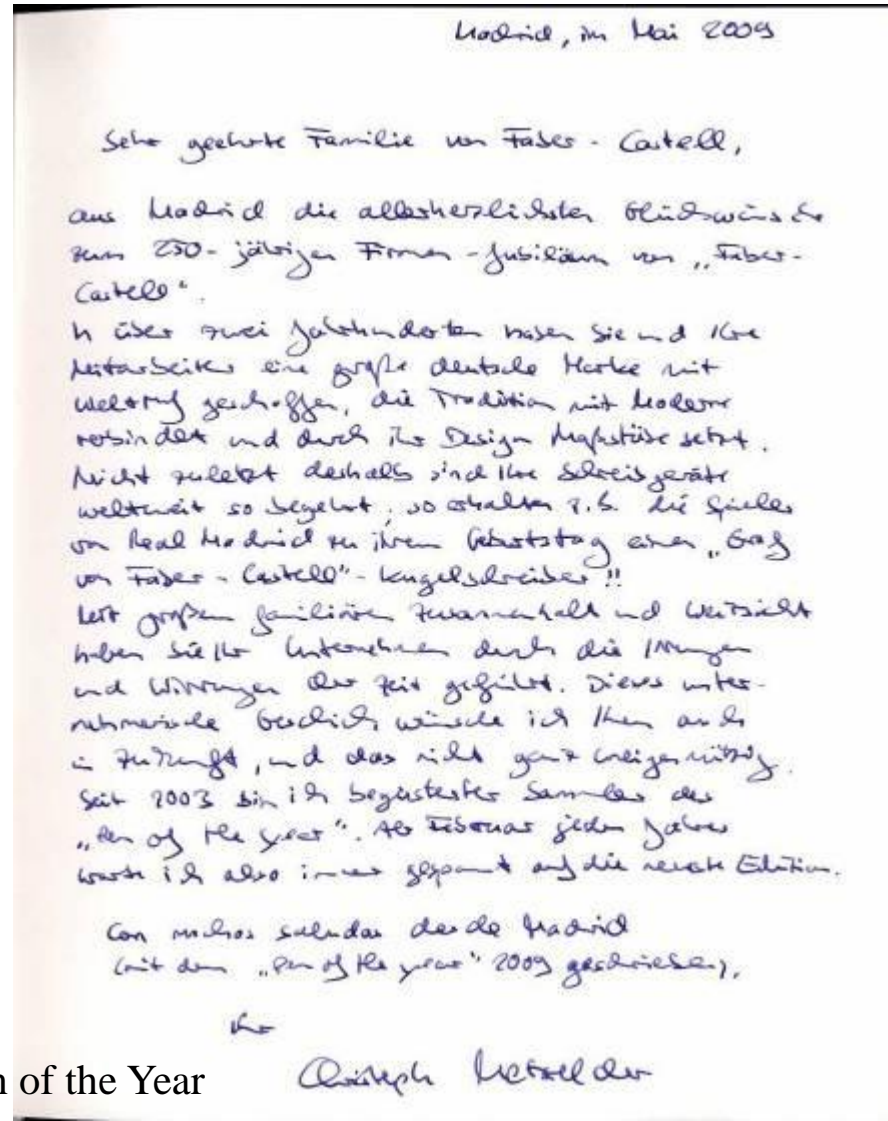 Madrid, im Mai 2009
Sehr geehrte Familie von Faber-Castell,
aus Madrid die allerherzlichsten Glückwünsche
zum 250-jährigen Firmen-Jubiläum von „Faber-
Castell“.
In über zwei Jahrhunderten haben Sie und Ihre
Mitarbeiter eine große deutsche Marke mit
Weltruf geschaffen, die Tradition mit Moderne
verbindet und durch ihr Design Maßstäbe setzt.
Nicht zuletzt deshalb sind Ihre Schreibgeräte
weltweit so begehrt, so erhalten z.B. die Spieler
von Real Madrid zu ihrem Geburtstag einen „Graf
von Faber-Castell“-Kugelschreiber!!
Mit großem familiären Zusammenhalt und Weitsicht
haben Sie Ihr Unternehmen durch die Irrungen
und Wirrungen der Zeit geführt. Dieses unter-
nehmerische Geschick wünsche ich Ihnen auch
in Zukunft, und das nicht ganz uneigennützig.
Seit 2003 bin ich begeisterter Sammler des
„Pen of the year“. Ab Februar jeden Jahres
warte ich also immer gespannt auf die neueste Edition.
Con muchos saludos desde Madrid
(mit dem „Pen of the year“ 2009 geschrieben),
Ihr
Christoph Metzelder
n of the Year